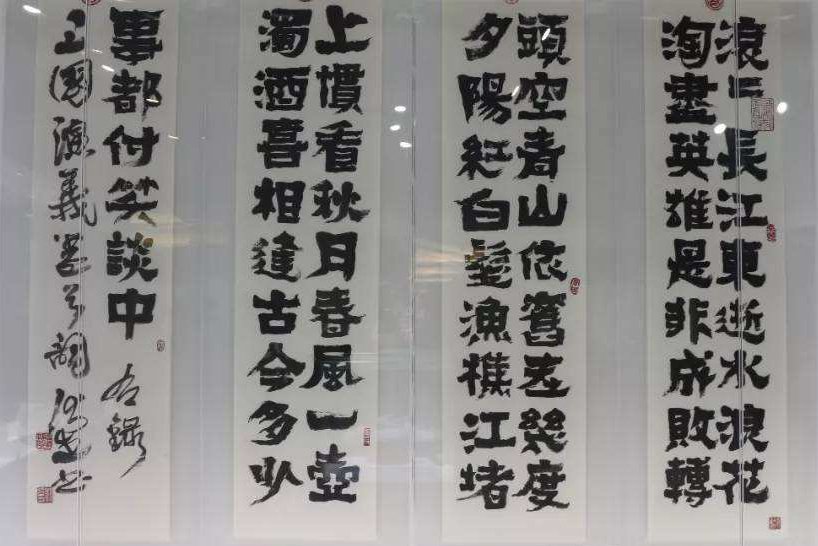 滚〻長江東逝水浪花
淘盡英雄是非成敗轉
頭空青山依舊在幾度
夕陽紅白髮漁樵江堵
上慣看秋月春風一壺
濁酒喜相逢古今多少
事都付笑談中 右錄
三國演義卷首詞